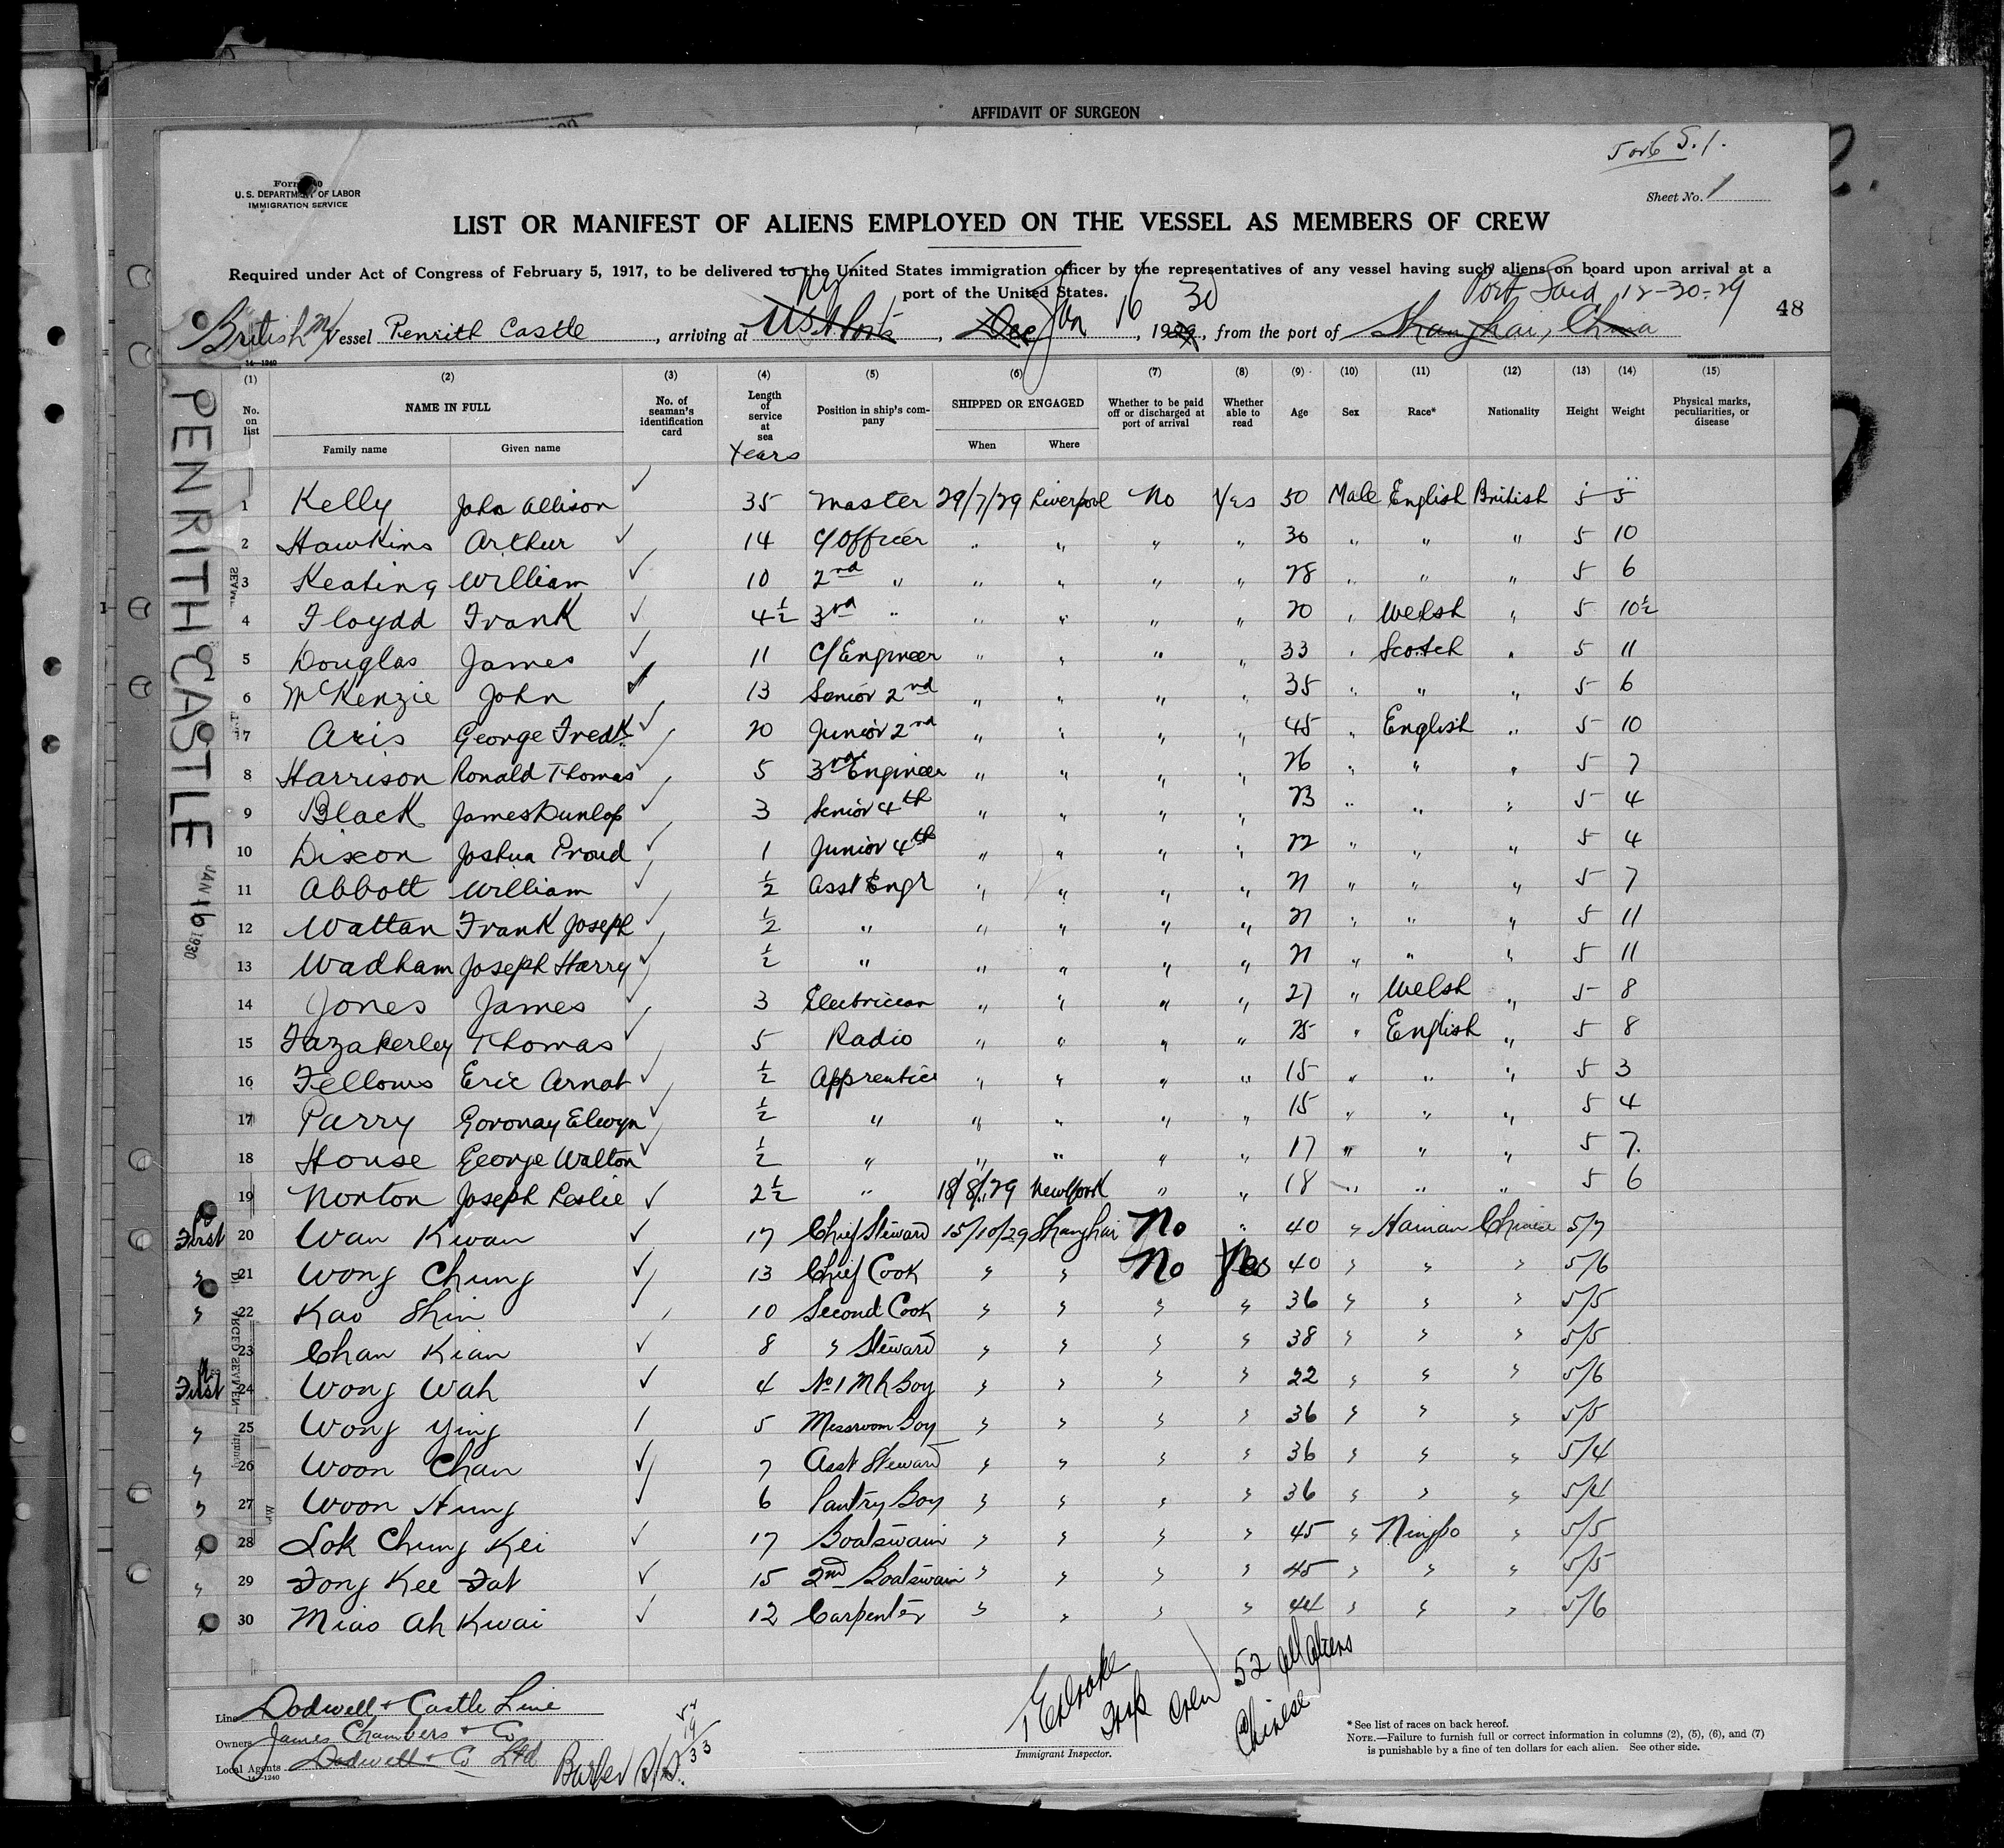 AFFIDAVIT OF SURGEON
5 or 6 S.1.
U. S. DEPARTMENT OF LABOR
IMMIGRATION SERVICE
Sheet No. 1
LIST OR MANIFEST OF ALIENS EMPLOYED ON THE VESSEL AS MEMBERS OF CREW
Required under Act of Congress of February 5, 1917, to be delivered to the United States immigration officer by the representatives of any vessel having such aliens on board upon arrival at a
port of the United States.
NY Jan 16 30 Port Said 12-30-29
48
British M/Vessel Penrith Castle, arriving at U.S.A. Ports, Dec, 1929, from the port of Shanghai, China
(1) (2) (3) (4) (5) (6) (7) (8) (9) (10) (11) (12) (13) (14) (15)
No. on list NAME IN FULL No. of seaman's identification card Length of service at sea Years Position in ship's company SHIPPED OR ENGAGED Whether to be paid off or discharged at port of arrival Whether able to read Age Sex Race* Nationality Height Weight Physical marks, peculiarities, or disease
Family name Given name When Where
PENRITH CASTLE
JAN 16 1930
1 Kelly John Allison ✓ 35 Master 29/7/29 Liverpool No Yes 50 Male English British 5 5
2 Hawkins Arthur ✓ 14 C/Officer " " " " 30 " " " 5 10
3 Keating William ✓ 10 2nd " " " " " 28 " " " 5 6
4 Floydd Frank ✓ 4½ 3rd " " " " " 20 " Welsh " 5 10½
5 Douglas James ✓ 11 C/Engineer " " " " 33 " Scotch " 5 11
6 McKenzie John ✓ 13 Senior 2nd " " " " 35 " " " 5 6
7 Aris George Fredk ✓ 20 Junior 2nd " " " " 45 " English " 5 10
8 Harrison Ronald Thomas ✓ 5 3rd Engineer " " " " 26 " " " 5 7
9 Black James Dunlop ✓ 3 Senior 4th " " " " 23 " " " 5 4
10 Dixon Joshua Proud ✓ 1 Junior 4th " " " " 22 " " " 5 4
11 Abbott William ✓ ½ Asst Engr " " " " 21 " " " 5 7
12 Wattan Frank Joseph ✓ ½ " " " " " 21 " " " 5 11
13 Wadham Joseph Harry ✓ ½ " " " " " 21 " " " 5 11
14 Jones James ✓ 3 Electrician " " " " 27 " Welsh " 5 8
15 Fazakerley Thomas ✓ 5 Radio " " " " 25 " English " 5 8
16 Fellows Eric Arnot ✓ ½ Apprentice " " " " 15 " " " 5 3
17 Parry Goronay Elwyn ✓ ½ " " " " " 15 " " " 5 4
18 House George Walton ✓ ½ " " " " " 17 " " " 5 7
19 Norton Joseph Leslie ✓ 2½ " 18/8/29 New York " " 18 " " " 5 6
First 20 Wan Kwan ✓ 17 Chief Steward 15/10/29 Shanghai No " 40 " Hainan Chinese 5/7
" 21 Wong Chung ✓ 13 Chief Cook " " No Yes 40 " " " 5/6
" 22 Kao Shin ✓ 10 Second Cook " " " " 36 " " " 5/5
23 Chan Kian ✓ 8 " Steward " " " " 38 " " " 5/5
First 24 Wong Wah ✓ 4 No 1 M R Boy " " " " 22 " " " 5/6
" 25 Wong Ying / 5 Messroom Boy " " " " 36 " " " 5/5
" 26 Woon Chan ✓ 7 Asst Steward " " " " 36 " " " 5/4
" 27 Woon Hung ✓ 6 Pantry Boy " " " " 36 " " " 5/4
" 28 Lok Chung Kei ✓ 17 Boatswain " " " " 45 " Ningpo " 5/5
" 29 Fong Kee Fat ✓ 15 2nd Boatswain " " " " 45 " " " 5/5
" 30 Miao Ah Kwai ✓ 12 Carpenter " " " " 44 " " " 5/6
Line Dodwell & Castle Line
Owners James Chambers & Co
Local Agents Dodwell & Co Ltd
14—1240
Barber
19
33
Crew 52 all aliens
Chinese
Immigrant Inspector.
*See list of races on back hereof.
NOTE.—Failure to furnish full or correct information in columns (2), (5), (6), and (7)
is punishable by a fine of ten dollars for each alien. See other side.